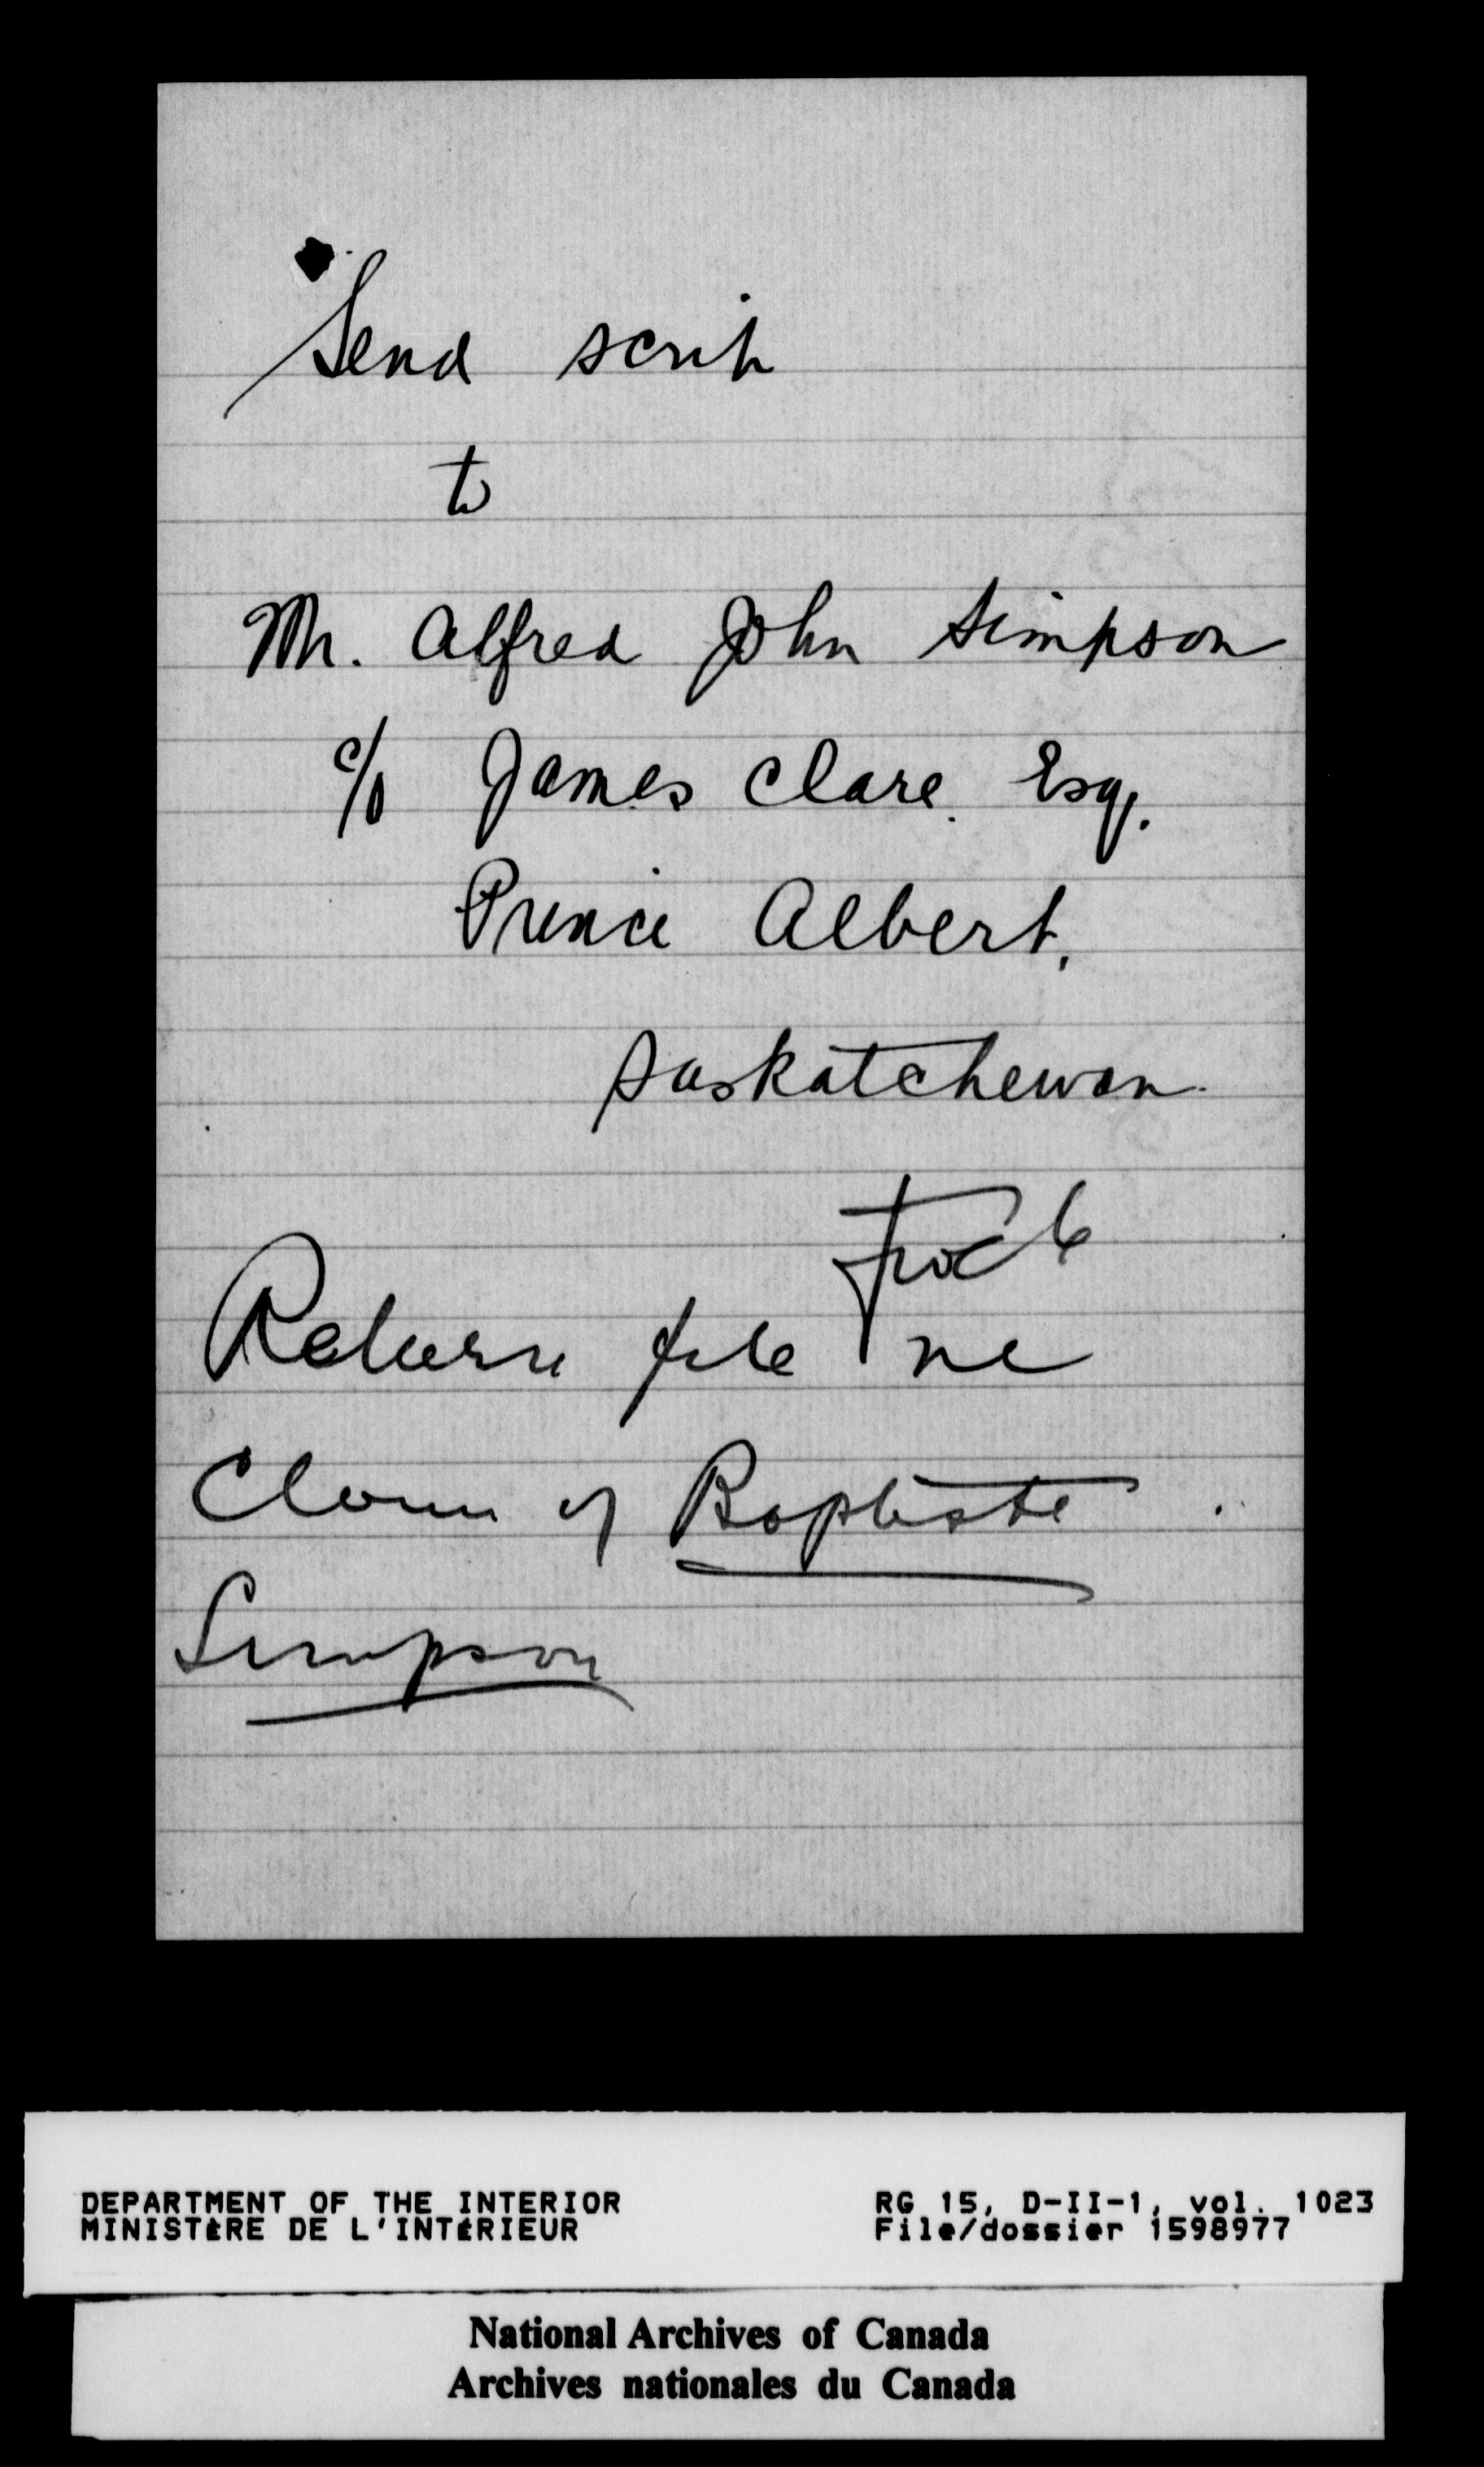 Send scrip
to
Mr. Alfred John Simpson
c/o James Clare. Esq.
Prince Albert,
Saskatchewan.
Return file re
Claim of Baptiste
Simpson
DEPARTMENT OF THE INTERIOR
MINISTÈRE DE L'INTÉRIEUR
RG 15, D-II-1, vol. 1023
File/dossier 1598977
National Archives of Canada
Archives nationales du Canada